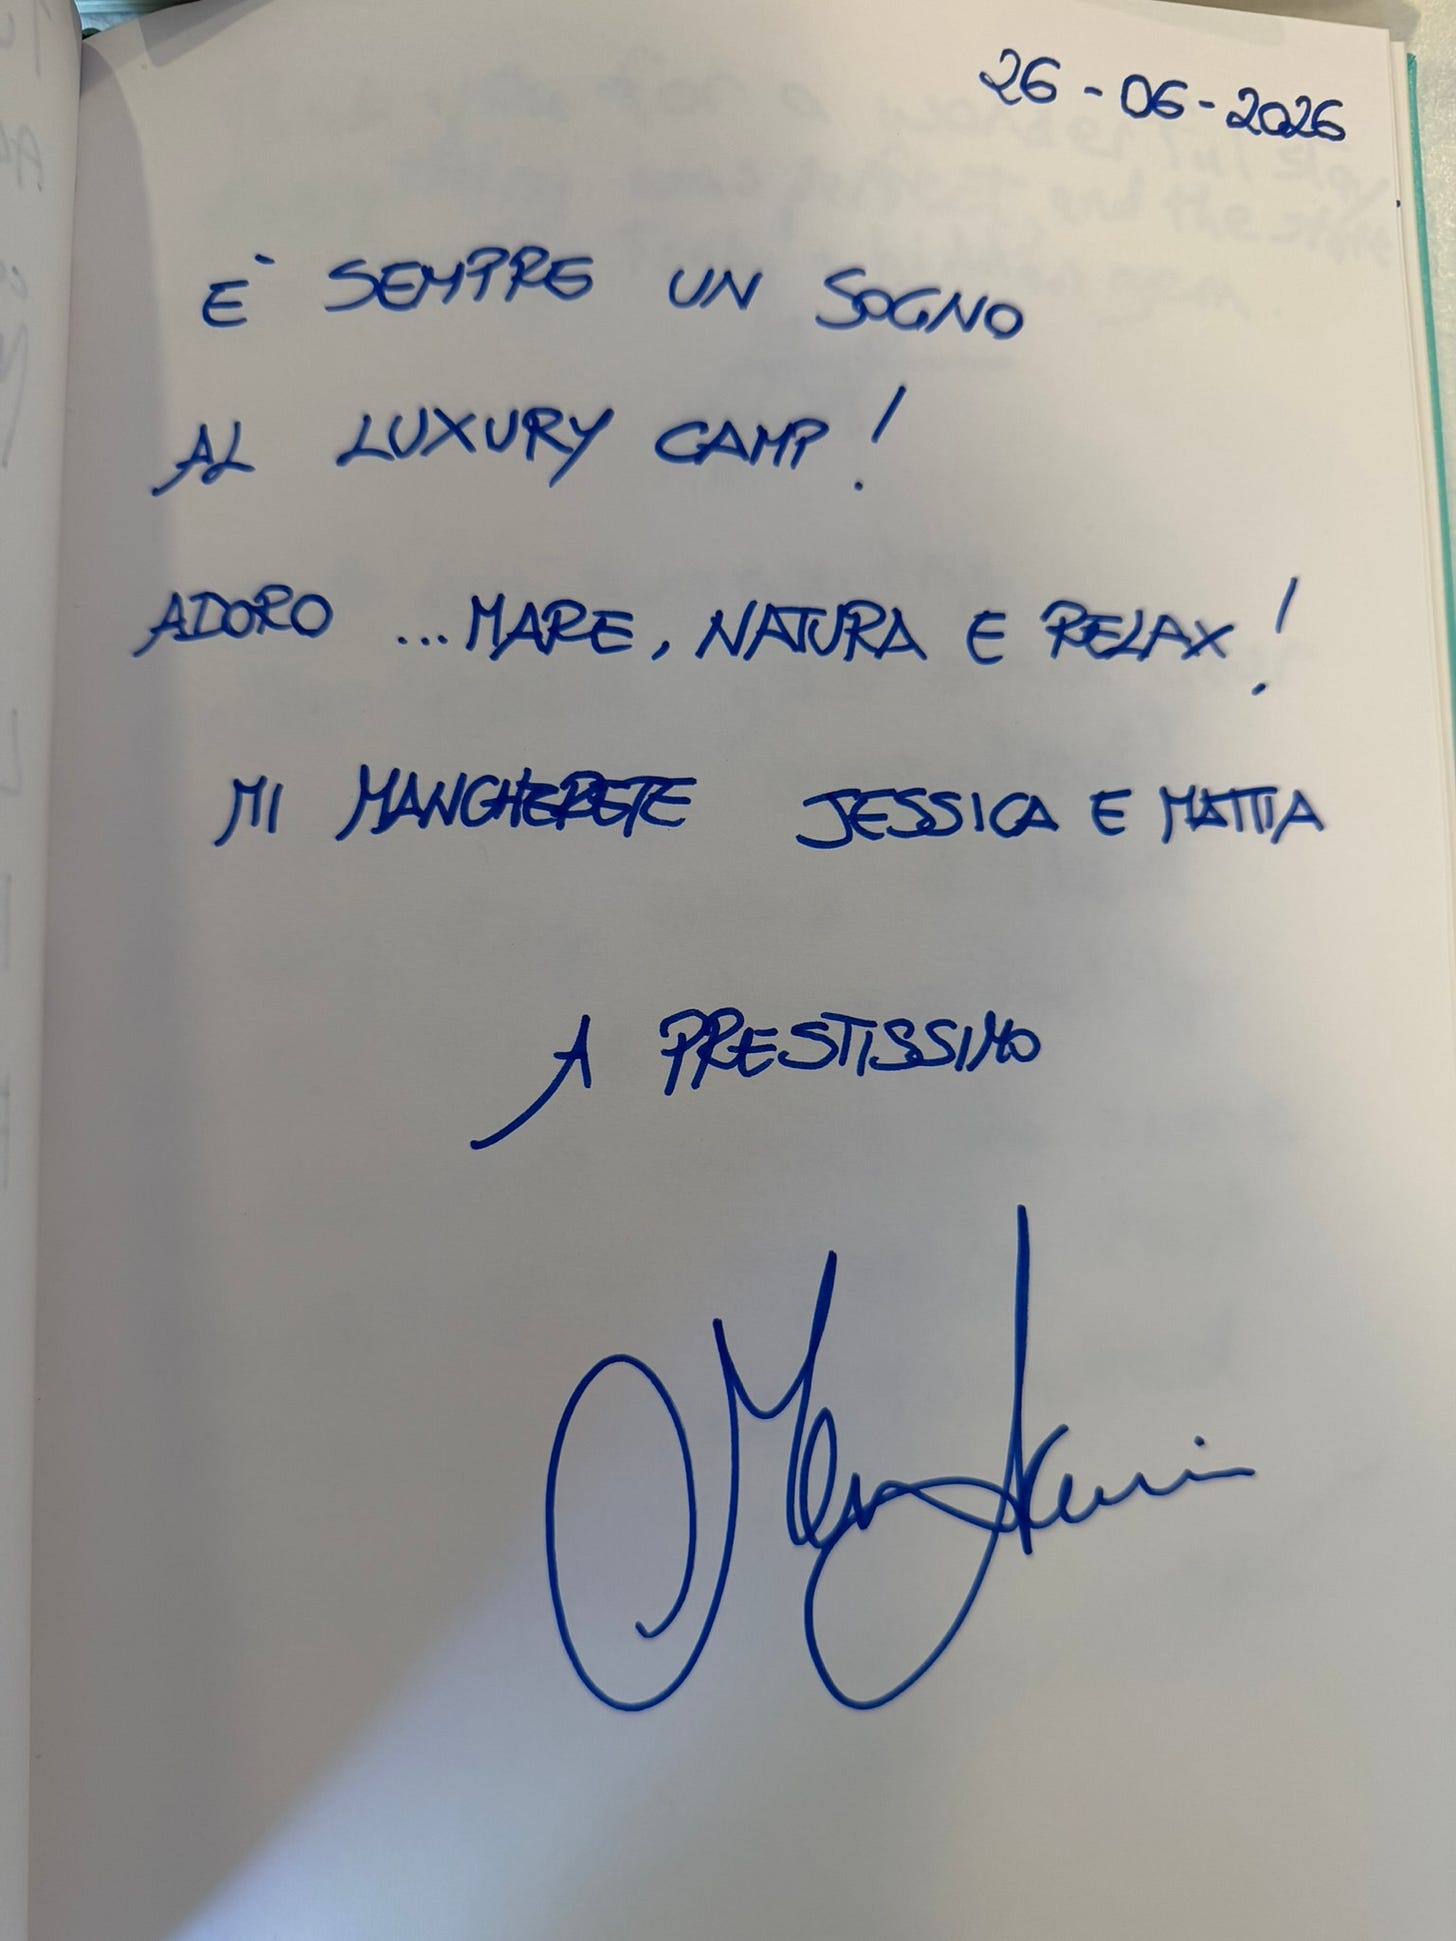 26-06-2026
E' SEMPRE UN SOGNO
AL LUXURY CAMP!
ADORO ...MARE, NATURA E RELAX!
MI MANCHERETE JESSICA E MATTIA
A PRESTISSIMO